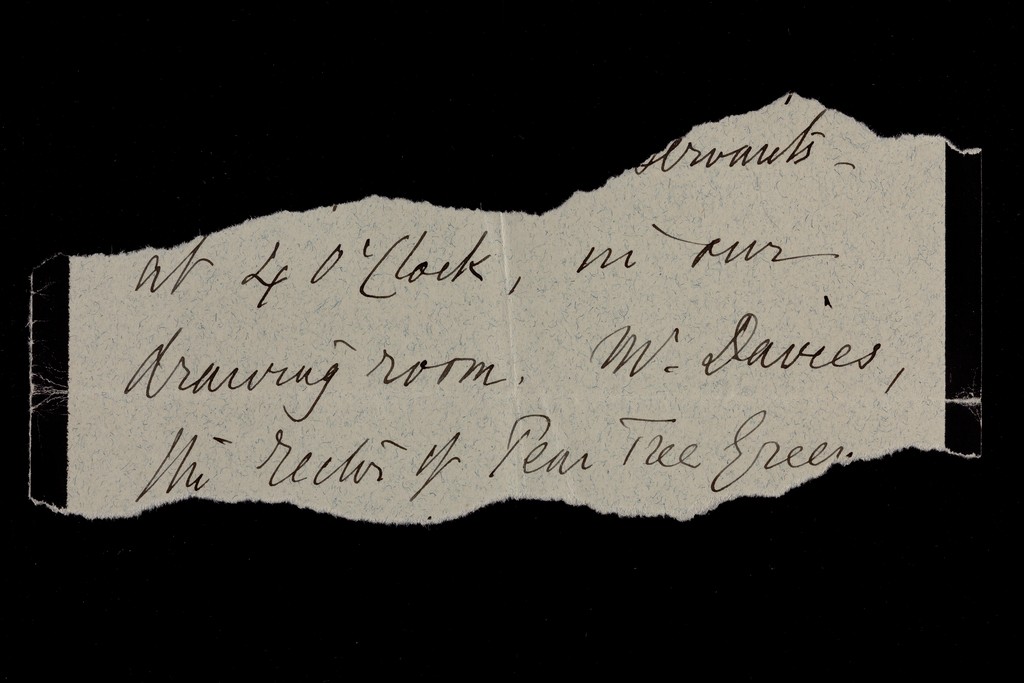 servants -
at 4 O'Clock, in our
drawing room. Mr. Davies,
the rector of Pear Tree Green